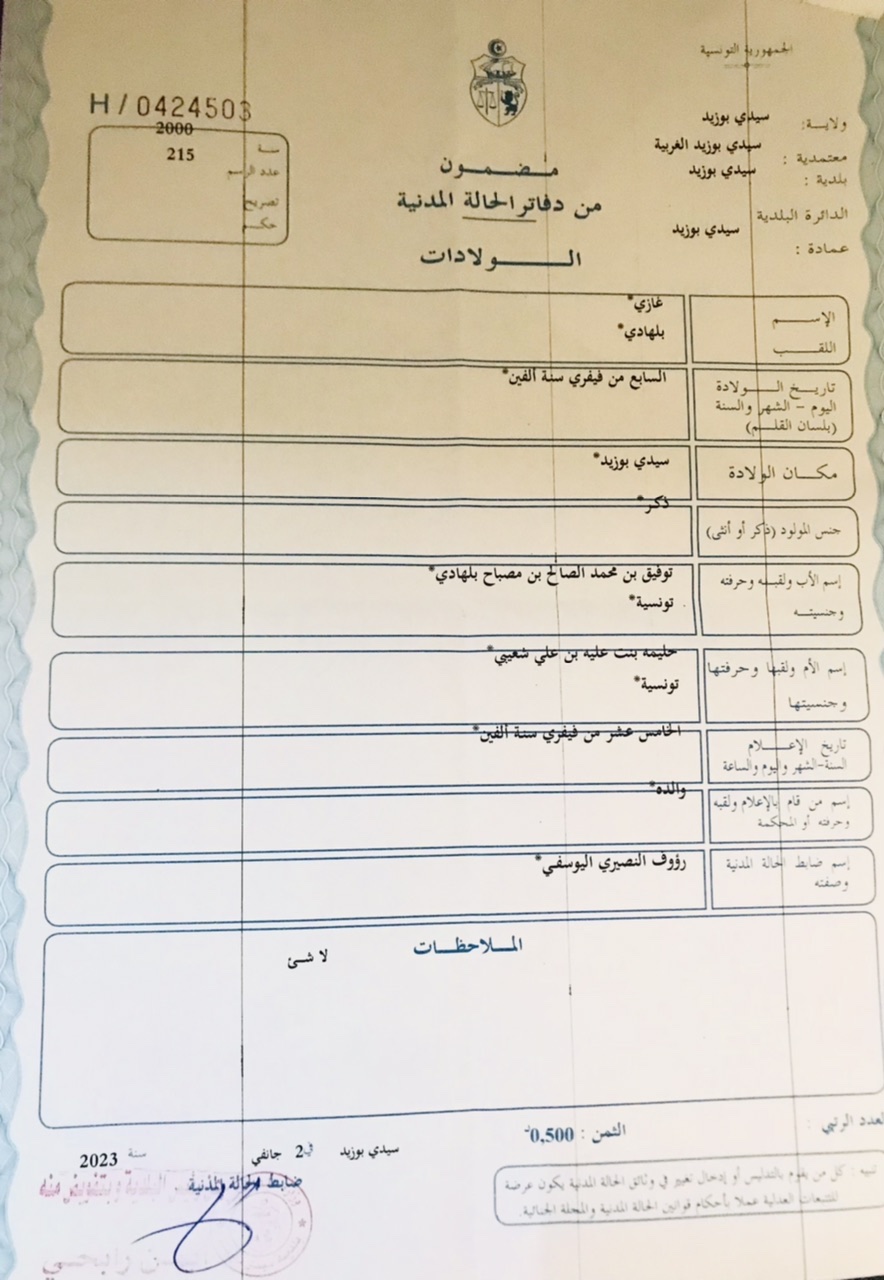 الجمهورية التونسية
H/0424503
ولاية: سيدي بوزيد
معتمدية : سيدي بوزيد الغربية
بلدية : سيدي بوزيد
الدائرة البلدية
عمادة : سيدي بوزيد
سنة 2000
عدد الرسم 215
تصريح
حكم
مضمون
من دفاتر الحالة المدنية
الولادات
الإسم غازي*
اللقب بلهادي*
تاريخ الولادة السابع من فيفري سنة ألفين*
اليوم - الشهر والسنة
(بلسان القلم)
مكان الولادة سيدي بوزيد*
جنس المولود (ذكر أو أنثى) ذكر*
إسم الأب ولقبه وحرفته توفيق بن محمد الصالح بن مصباح بلهادي*
وجنسيته تونسية*
إسم الأم ولقبها وحرفتها حليمه بنت عليه بن علي شعيبي*
وجنسيتها تونسية*
تاريخ الإعلام الخامس عشر من فيفري سنة ألفين*
السنة-الشهر واليوم والساعة
إسم من قام بالإعلام ولقبه والده*
وحرفته أو المحكمة
إسم ضابط الحالة المدنية رؤوف النصيري اليوسفي*
وصفته
الملاحظات
لا شئ
العدد الرتبي :
الثمن : 0,500
سيدي بوزيد في 2 جانفي سنة 2023
ضابط الحالة المدنية
تنبيه : كل من يقوم بالتدليس أو إدخال تغيير في وثائق الحالة المدنية يكون عرضة
للتتبعات العدلية عملا بأحكام قوانين الحالة المدنية والمجلة الجنائية.
وبتفويض منه
رابحي